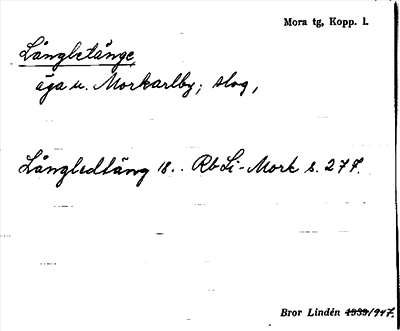 Mora tg, Kopp. l.
Långbetänge,
äga u. Morkarlby; slog,
Långledtäng 18.. Rb Li-Mork s. 27 F.
Bror Lindén 1939/947.